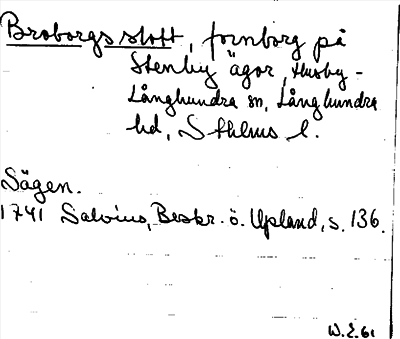 Broborgs slott, fornborg på
Stenby ägor, Husby-
Långhundra sn, Långhundra
hd, Sthlms l.
Sägen.
1741 Salvius, Beskr. ö. Upland, s. 136.
W.E. 61